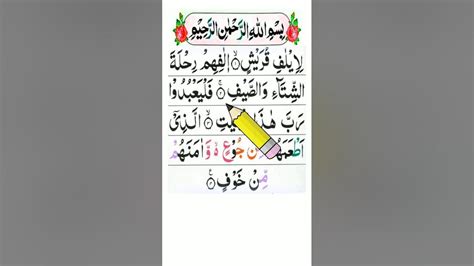 بِسْمِ اللهِ الرَّحْمٰنِ الرَّحِيْمِ
لِاِيْلٰفِ قُرَيْشٍ ۙ اٖلٰفِهِمْ رِحْلَةَ
الشِّتَآءِ وَالصَّيْفِ ۚ فَلْيَعْبُدُوْا
رَبَّ هٰذَا ۙ الَّذِیْۤ
مِّنْ جُوْعٍ ۙ وَّاٰمَنَهُمْ
مِّنْ خَوْفٍ